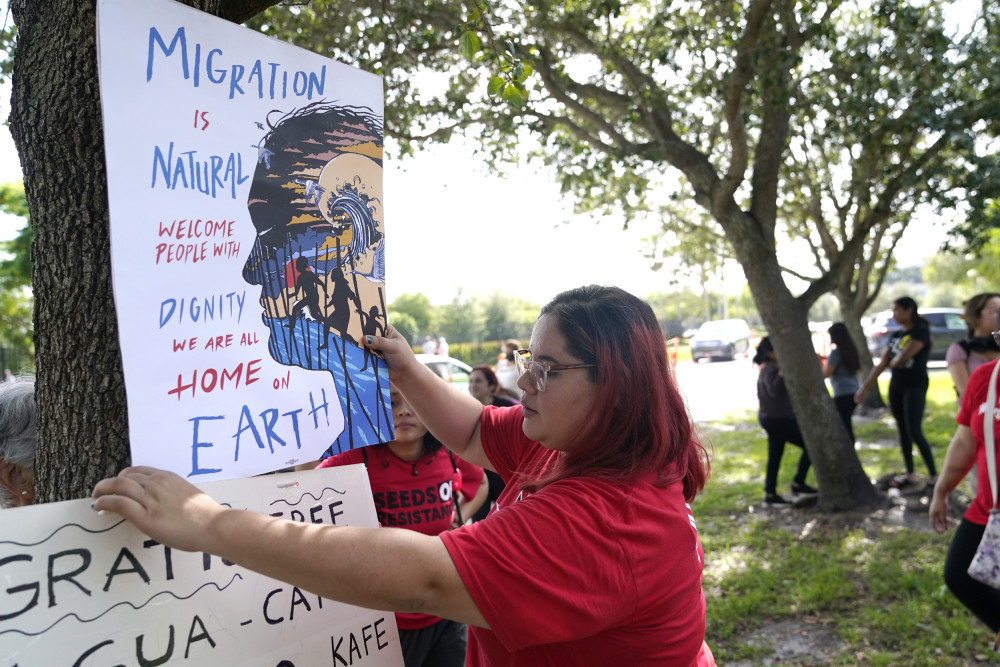 MIGRATION
IS
NATURAL
WELCOME
PEOPLE WITH
DIGNITY
WE ARE ALL
HOME ON
EARTH
SEEDS OF
RESISTANCE
FREE
GRATIS
AGUA - CAF
KAFE